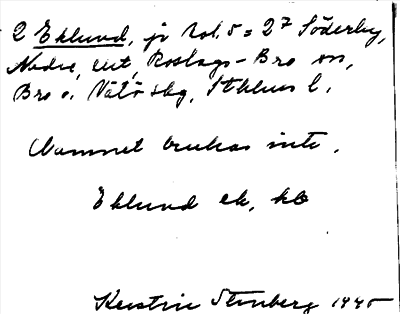 2 Eklund, jr Rol. 5 = 2⁷ Söderby,
Nedre, ext, Roslags-Bro sn,
Bro o. Vätö skg, Sthlms l.
Namnet brukas inte.
Eklund ek,
Kerstin Stenberg 1945